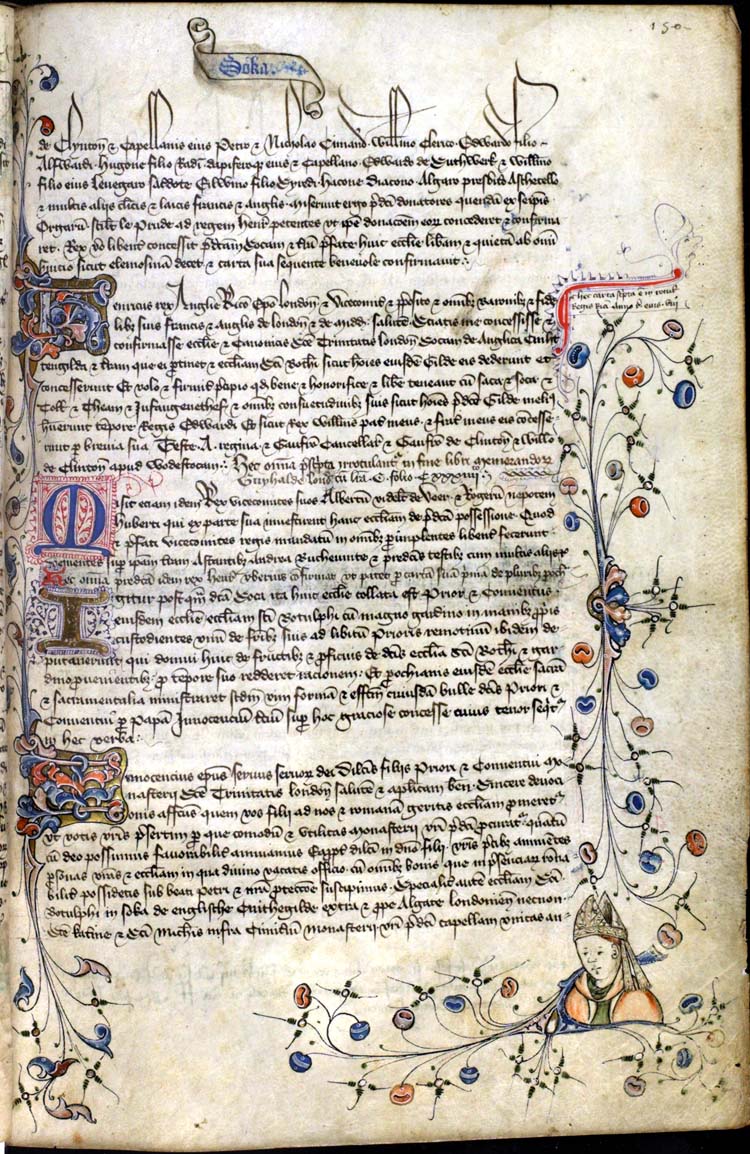 150
Soka
de Clynton & Capellanis eius Petro & Nicholao Willmo Clerico Edwardo filio
Alfwardi Hugone filio Radi dapifero eius & Capellano Edwardo de Suthwerk & Willmo
filio eius Lenegaro Eilwino filio Hacone Diacono Algaro presbito
& multis alijs clicis & laicis francis & anglis Miserunt ergo pdci donatores quendam ex seipis
Orgarum le Prude ad regem Henr petentes ut ipe donacoem eorum concederet & confirma
ret Rex vo libent concessit pdctam Socam & tram pfate huic ecclie libam & quietam ab omi
suicio sicut elemosinam decet & carta sua sequente beneuole confirmauit
Henricus rex Anglie Rico Epo london & Vicecomitib & pposito & omib Baronib & fide
libz suis francis & anglis de london & de Midd salute Sciatis me concessisse &
confirmasse ecclie & Canonicis Sce Trinitatis london Socam de Anglica Cniht
tengilda & tram que ei ptinet & eccliam Sci Bothi sicut hoies eiusdem Gilde eis dederunt et
concesserunt Et volo & firmit pcipio qd bene & honorifice & libe teneant cum saca & Soca &
Toll & Theam & Infangenethef & omib consuetudinib suis sicut hoies pdcte Gilde meli
habuerunt tepore Regis Edwardi Et sicut Rex Willms pat meus & frat meus eis cocesse
runt p breuia sua Teste A regina & Gaufro Cancellar & Gaufro de Clinton & Willo
de Clinton apud Wodestocam Hec omia irrotulant in fine libri memorandorum
Guyhalde london lra C folio C xxxiiij
Misit eciam idem Rex vicecomites suos Albericum de Veer & Rogerum nepotem
Huberti qui ex parte sua inuestirent hanc eccliam de pdcta possessione Quod
& pfati vicecomites regis mandatum in omib pimplentes libent fecerunt
sup ipam tram astantib Andrea Bucheuinte & predcis testib cum multis alijs
Hec omia predca idem rex henr confirmat ut patet p cartam suam
Igitur post qm dcta Soca ita huic ecclie collata est Prior & Conuentus
eiusdem ecclie eccliam sci Botulphi cum magno gardino in manib pprijs
custodientes unum de frib suis ad libitum Prioris remotiuum ibidem de
putauerunt qui domui huic de fructib & pficuis de dicta ecclia Sci Bothi & gar
dino puenientib p tepore suo redderet racionem Et pochianis eiusdem ecclie sacra
& sacramentalia ministraret scdm vim formam & effcm cuiusdam bulle dcis Priori &
Conuentui p Papam Innocencium sup hoc graciose concesse cuius tenor seqit
in hec verba
Innocencius epus seruus seruor dei Dilcis filijs Priori & Conuentui mo
nasterij Sce Trinitatis london salute & aplicam ben Sincere deuoci
onis affcus quem vos filij ad nos & romanam geritis eccliam pmeret
ut votis vris psertim p que comodum & utilitas monasterij vri pdci pcurat quatum
cu deo possumus fauorabilit annuamus Eapp dilci in dno filij vris pcib annuetes
psonas vras & eccliam in qua diuino vacatis officio cu omib bonis que in psenciar rona
bilit possidetis sub beati Petri & nra pteccoe suscipimus Specialit aute eccliam Sci
Botulphi in soka de englische Cnithegilde extra & ppe Algate londonien necnon
Sce katine & Sci Michis infra Cimitium Monasterij vri pdci capellam vnitas an
hec carta scpta e in rotul
Regis anno